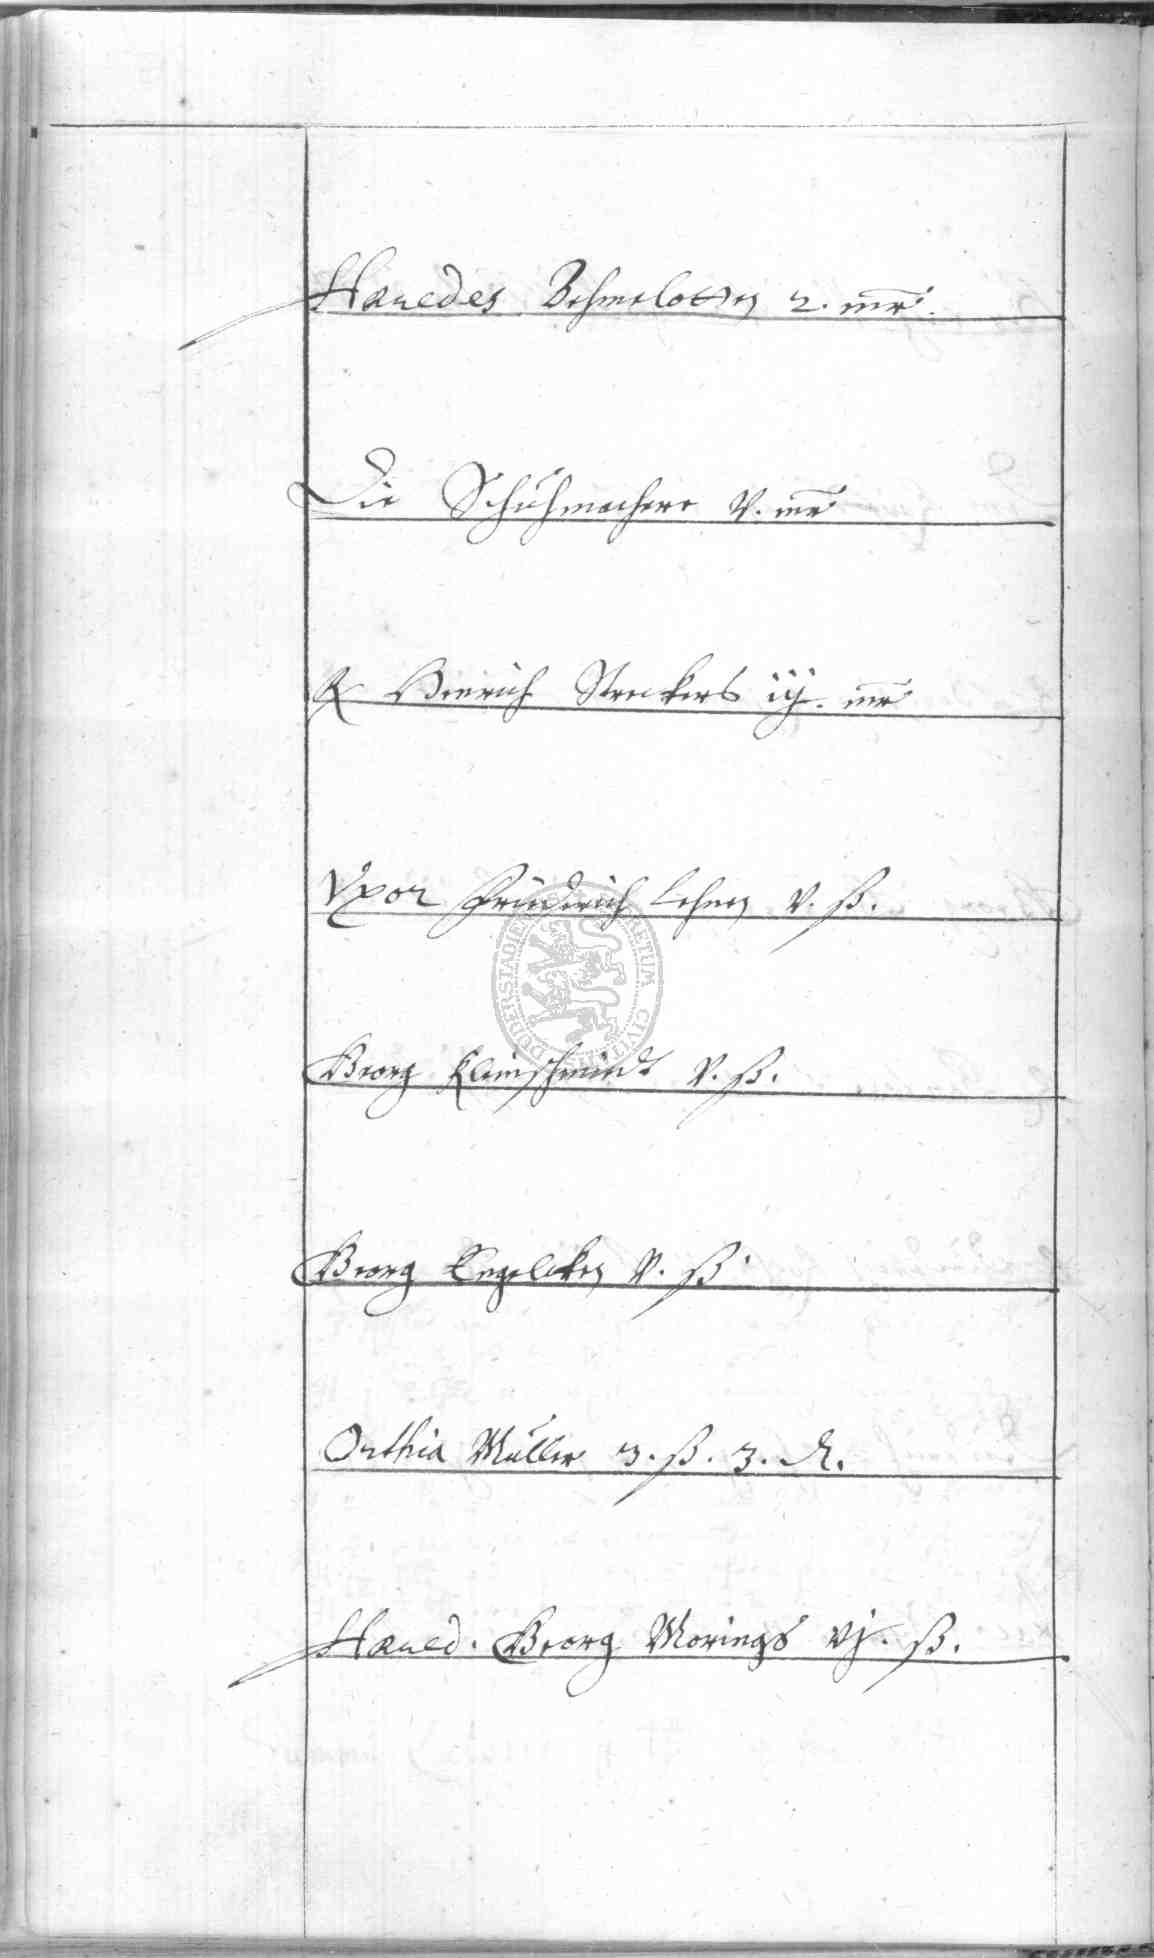 Haeredes Behmelotten 2. mr.
Die Schuhmachere v. mr
R Henrich Streckers iij. mr
Vxor Friederich Lehnen v. ß.
Georg Kleinschmidt v. ß.
Georg Engelcken v. ß.
Orthia Müller 3. ß. 3. d.
Haered. Georg Morings vj. ß.
DUDERSTADIENS RETUM CIVITATIS